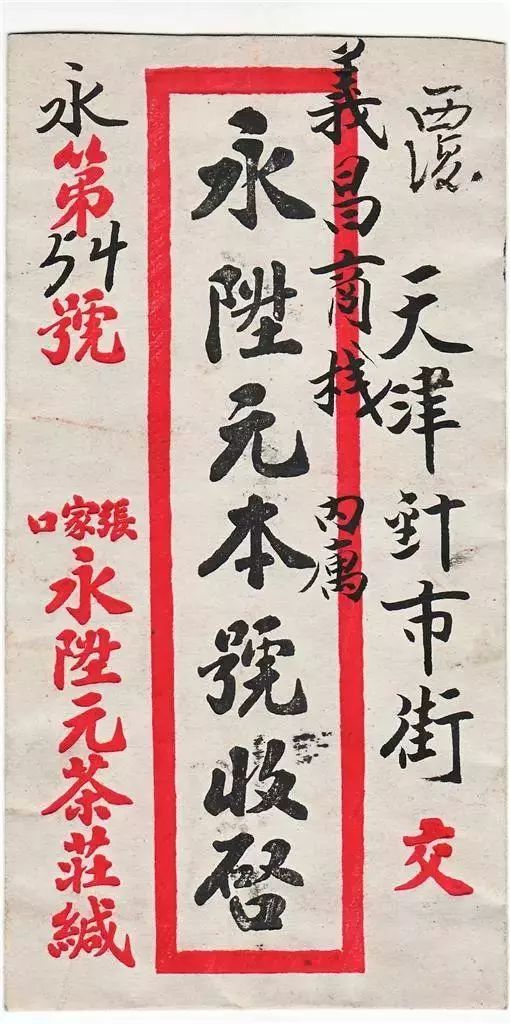 天津針市街交
義昌商栈内寓
永陞元本號收啓
永第54號
張家口
永陞元茶莊緘